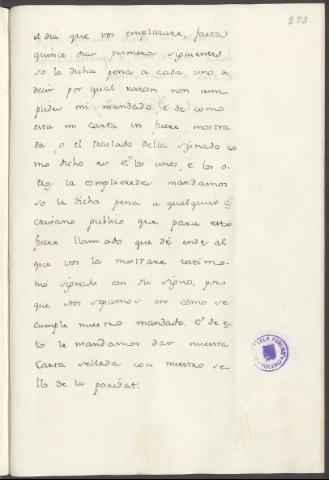 273
el dia que vos emplazare, fasta
quince dias primeros siguientes
so la dicha pena a cada uno, a
decir por qual razon non cum
plides mi mandado, é de como
esta mi carta vos fuere mostra
da, o el traslado della signado co
mo dicho es, é los unos, e los o-
tros la cumplieredes mandamos
so la dicha pena a qualquier es
crivano publico que para esto
fuere llamado que dé ende al
que vos la mostrare testimo-
nio signado con su signo, por
que Nos sepamos en como se
cumple nuestro mandado. E de es
to le mandamos dar nuestra
Carta sellada con nuestro se-
llo de la poridat.
TECA PUBLICA
TOLEDO